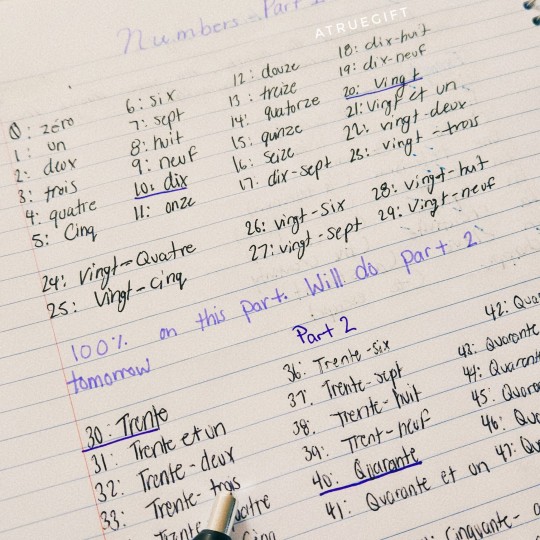 Numbers - Part
ATRUEGIFT
0: zero
1: un
2: deux
3: trois
4: quatre
5: Cinq
6: six
7: sept
8: huit
9: neuf
10: dix
11: onze
12: douze
13: treize
14: quatorze
15: quinze
16: seize
17: dix-sept
18: dix-huit
19: dix-neuf
20: Vingt
21: Vingt et un
22: vingt-deux
23: vingt-trois
24: Vingt-Quatre
25: Vingt-cinq
26: vingt-six
27: vingt-sept
28: vingt-huit
29: Vingt-neuf
100% on this part. Will do part 2
tomorrow
Part 2
30: Trente
31: Trente et un
32: Trente-deux
33: Trente-trois
36: Trente-six
37: Trente-sept
38: Trente-huit
39: Trent-neuf
40: Quarante
41: Quarante et un
42:
43: Quarante
44:
45:
46:
47: